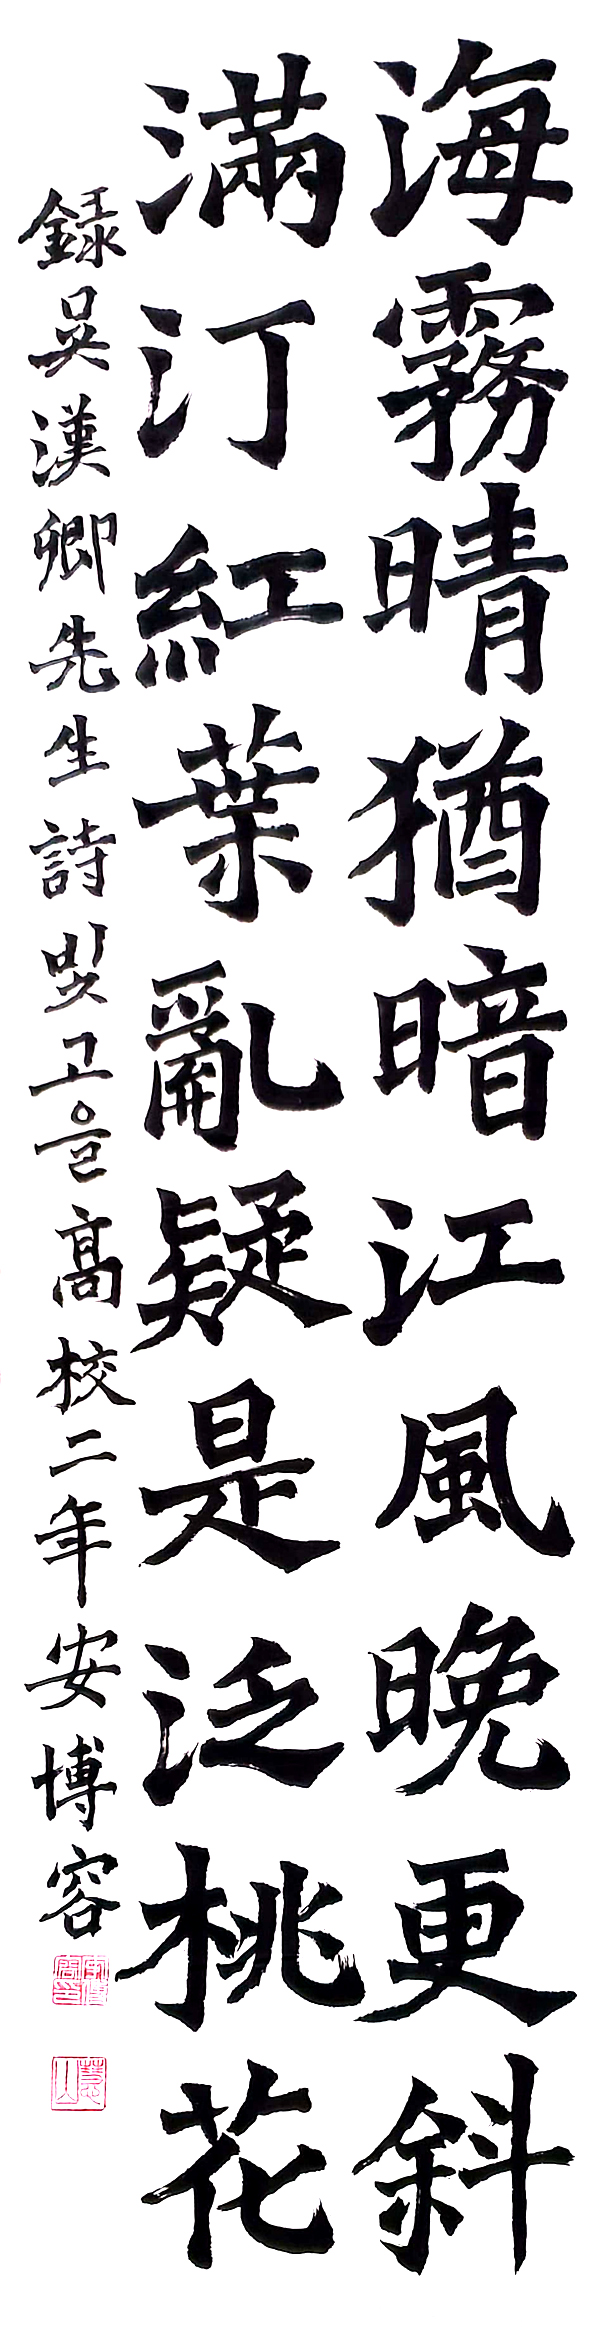 海霧晴猶暗江風晩更斜
滿汀紅葉亂疑是泛桃花
錄吳漢卿先生詩빛고을高校二年安博容